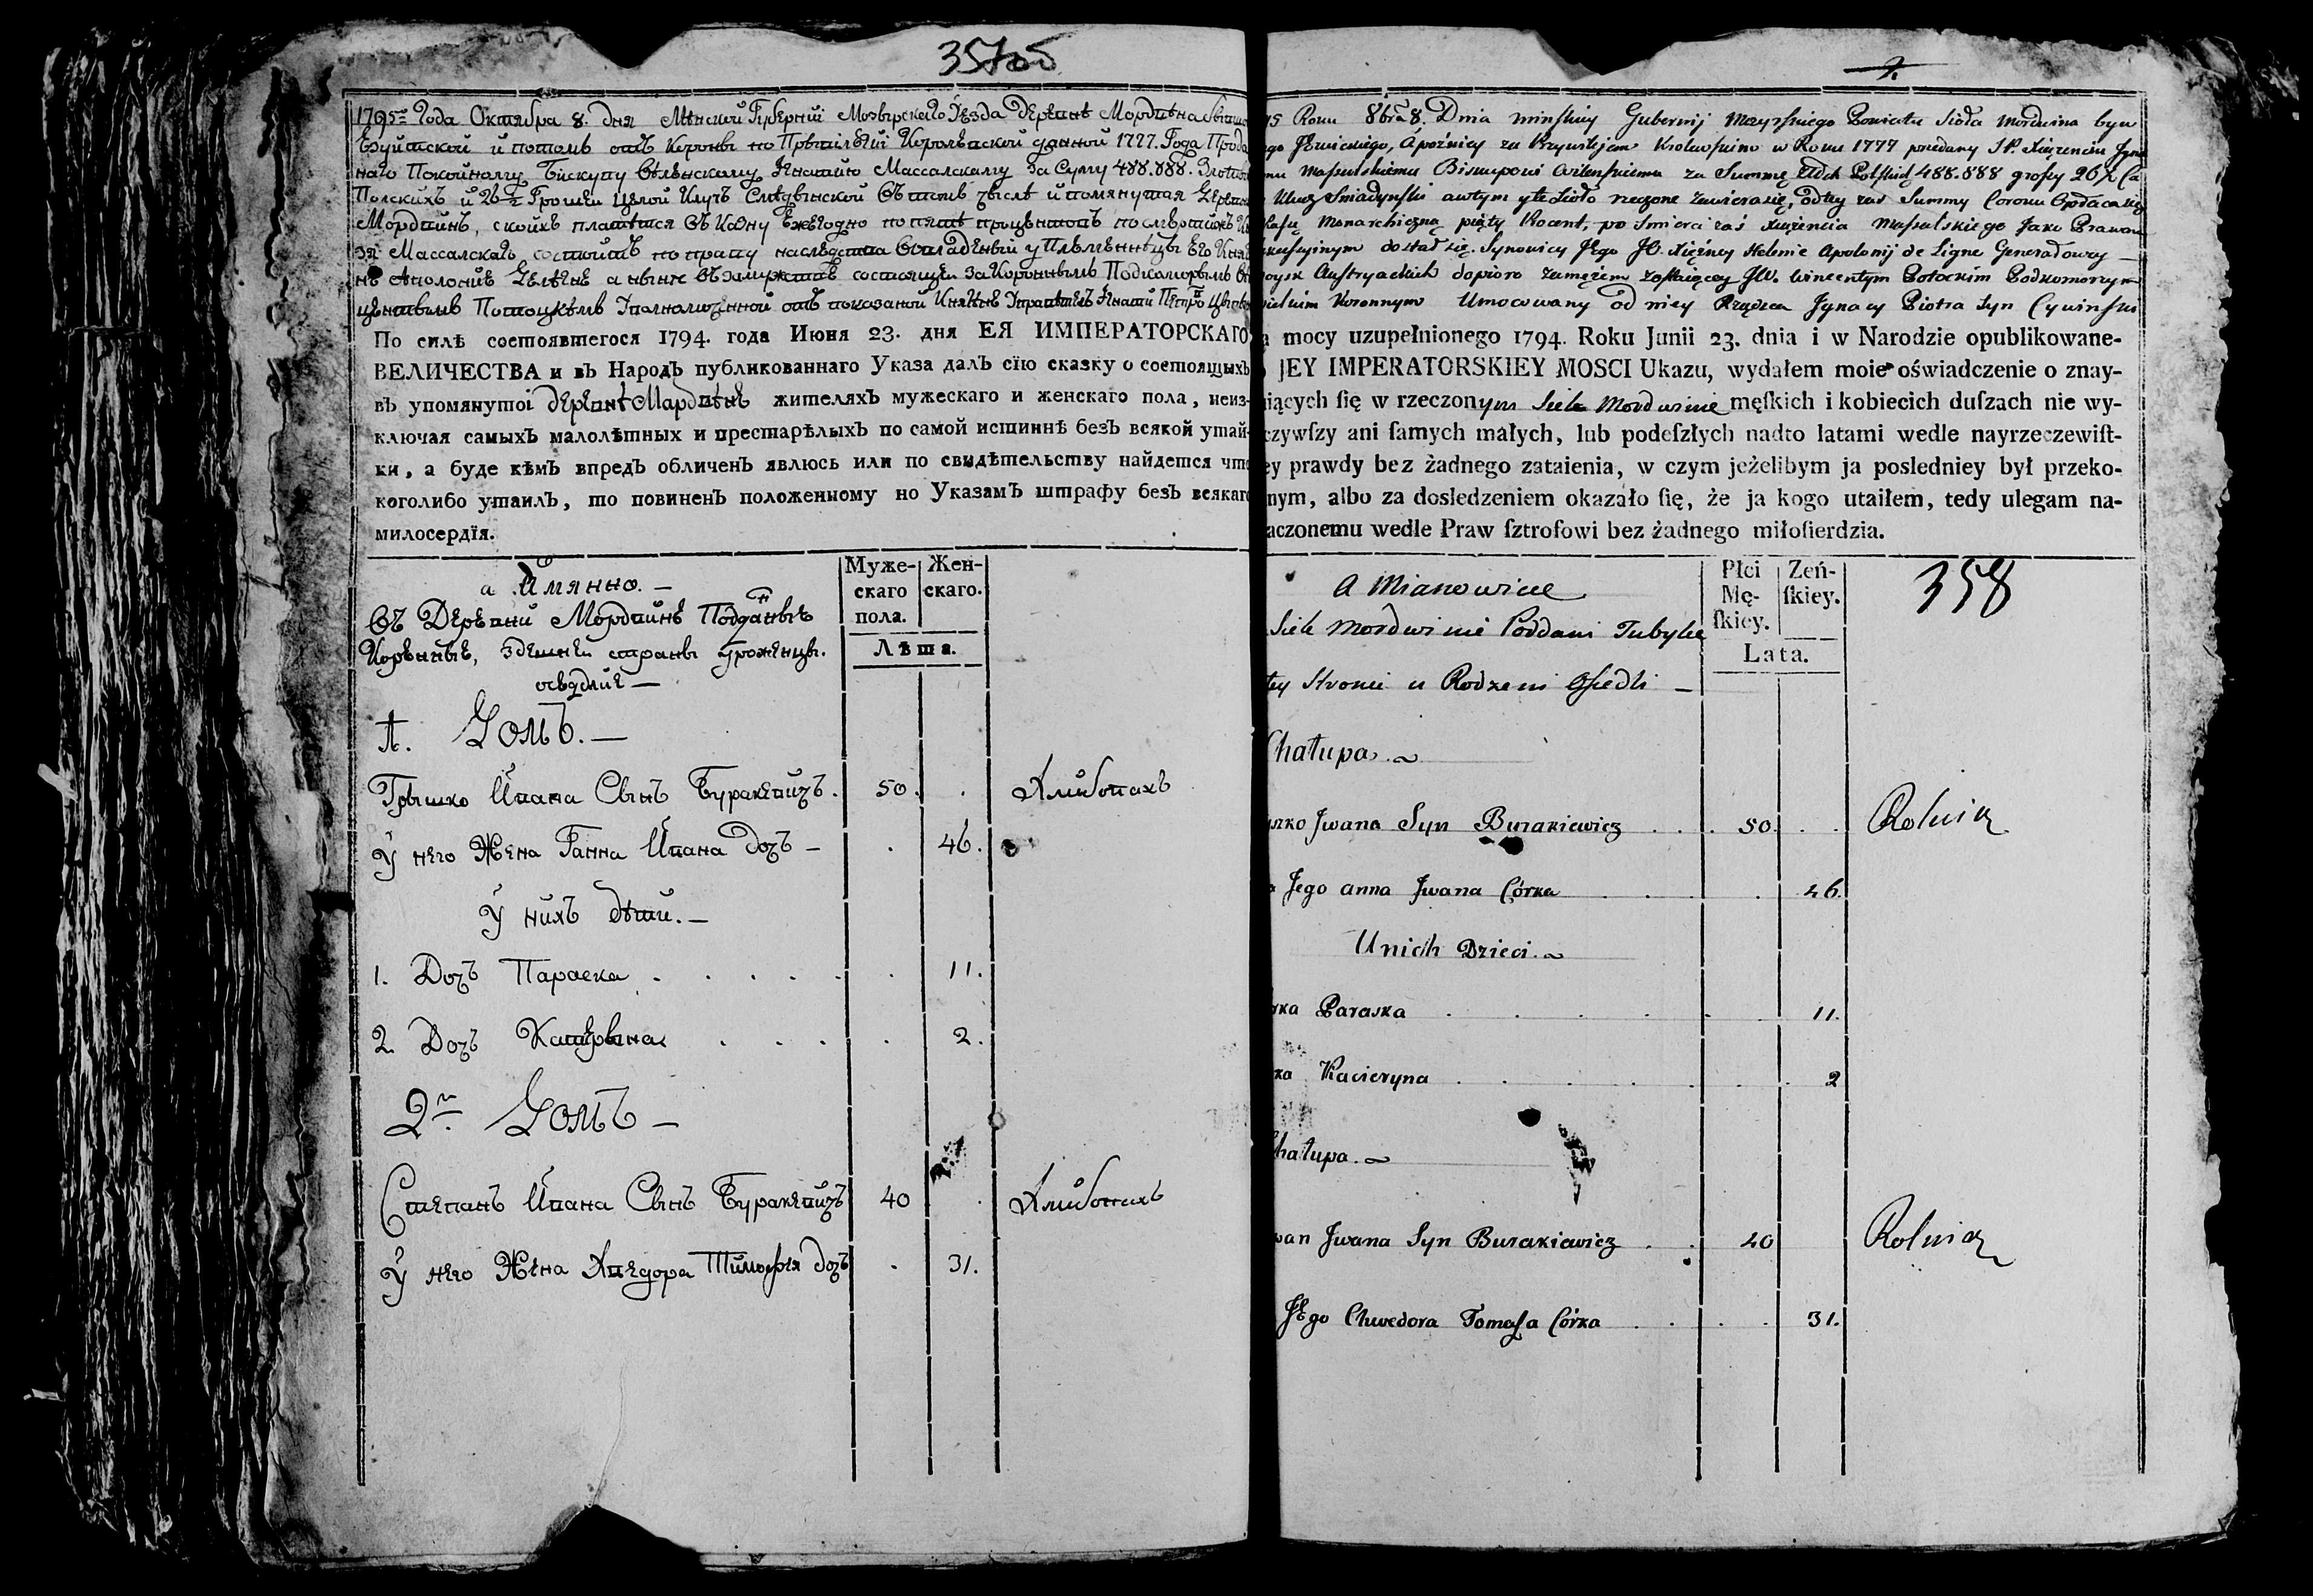 357об
1795го Года Октября 8. дня Минской Губерніи Мозырскаго Уезда Деревне Мордвина
Езуитской и потомъ отъ Короны по Привилегіи Королевской данной 1777. Года
наго Покойному Бискупу Виленскому Игнатию Массалскому за Сумму 488.888.
Полскихъ и 26 Грошей целой Ключъ Смедынской Въ томъ числе и помянутая
Мордвинъ, скоихъ платится Въ Казну Ежегодно по пяти процентовъ по смерти
Массалскаго состоитъ по праву наследства Во владеніи у Племенницы Его
Аполоние Делигне а ныне Въ замужстве состоящей за Короннымъ Подкоморымъ
центымъ Потоцкимъ Уполномоченной отъ показаной Княжне Управитель Игнатій Петра
По силѣ состоявшегося 1794. года Июня 23. дня ЕЯ ИМПЕРАТОРСКАГО
ВЕЛИЧЕСТВА и въ Народъ публикованнаго Указа далъ сїю сказку о состоящыхъ
въ упомянутої деревне Мардвине жителяхъ мужескаго и женскаго пола, неиз-
ключая самыхъ малолѣтныхъ и престарѣлыхъ по самой истиннѣ безъ всякой утай-
ки, а буде кѣмъ впредъ обличенъ явлюсь или по свидѣтельству найдется что
коголибо утаилъ, то повиненъ положенному по Указамъ штрафу безъ всякаго
милосердїя.
а Имянно. —
Муже-
скаго
пола.
Жен-
скаго.
Лѣта.
Въ Деревни Мордвине Подданые
Коренные, здешней страны уроженцы.
оседлые —
1. Домъ. —
Грышко Ивана Сынъ Буракевичъ. 50. . Хлибопахъ
У него Жена Ганна Ивана дочь — . 46.
У нихъ дети. —
1. Дочь Параска . . . . . 11.
2. Дочь Катерына . . . . 2.
2й Домъ —
Степанъ Ивана Сынъ Буракевичъ 40 . Хлибопахъ
У него Жена Хведора Тимофея дочь . 31.
2.
95 Roku 8bra 8. Dnia minskiey Gubernij Mozyrskiego Powiatu Sioła Mordwina byw
go Jezuickiego, A poźniey za Przywilejem Krolewskim w Roku 1777 przedany
Massalskiemu Biskupowi wilenskiemu za Summę Złtch Polskich 488.888 groszy 26
Klucz Smiadynski w tym y te Sioło rzeczone zawiera się, od tey zaś Summy
Monarchiczną piąty Procent, po śmierci zaś Xiążencia Massalskiego Jako Prawem
dostał się. Synowicy Jego JO. Xiężney Helenie Apolonij de Ligne Generałowey —
woysk Austryackich dopiero zamężem zostaięcey JW. Wincentym Potockim Podkomorzym
wielkim Koronnym Umocowany od niey Rządca Jgnacy Piotra Syn Cywinski
mocy uzupełnionego 1794. Roku Junii 23. dnia i w Narodzie opublikowane-
JEY IMPERATORSKIEY MOSCI Ukazu, wydałem moie oświadczenie o znay-
iących ſię w rzeczonym Siele Mordwinie męſkich i kobiecich duſzach nie wy-
czywſzy ani ſamych małych, lub podeſzłych nadto latami wedle nayrzeczewiſt-
ey prawdy bez żadnego zataienia, w czym jeżelibym ja posledniey był przeko-
nym, albo za dosledzeniem okazało ſię, że ja kogo utaiłem, tedy ulegam na-
aczonemu wedle Praw ſztrofowi bez żadnego miłoſierdzia.
A Mianowicie
Płci
Mę-
ſkiey.
Zeń-
ſkiey.
Lata.
358
Siele Mordwinie Poddani Tubylce
tey Strony u Rodzeni Osiedli —
Chałupa.
szko Jwana Syn Burakiewicz . . . 50. . . Rolnik
Jego anna Jwana Córka . . . 46.
Unich Dzieci.
rka Paraska . . . . . . 11.
ka Kacieryna . . . . . . 2
hałupa.
pan Jwana Syn Burakiewicz . . 40 Rolnik
Jego Chwedora Tomaſa Córka . . . . 31.